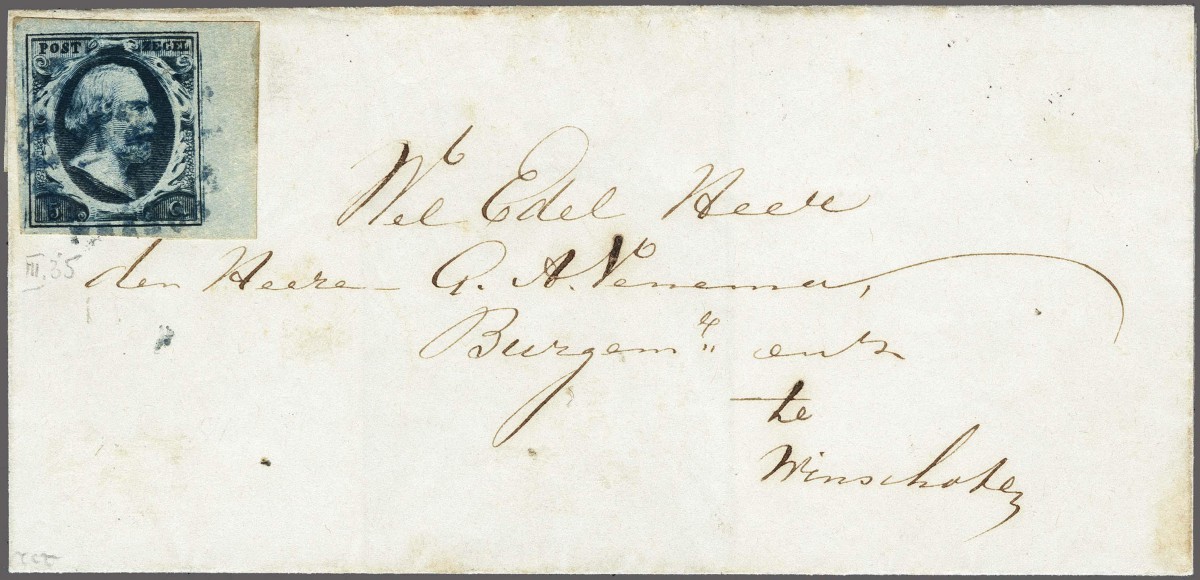 POST ZEGEL
5 C.
Wel Edel Heer
den Heere - G. A. Venema,
Burgemr. enz
te
Winschoten
III.35